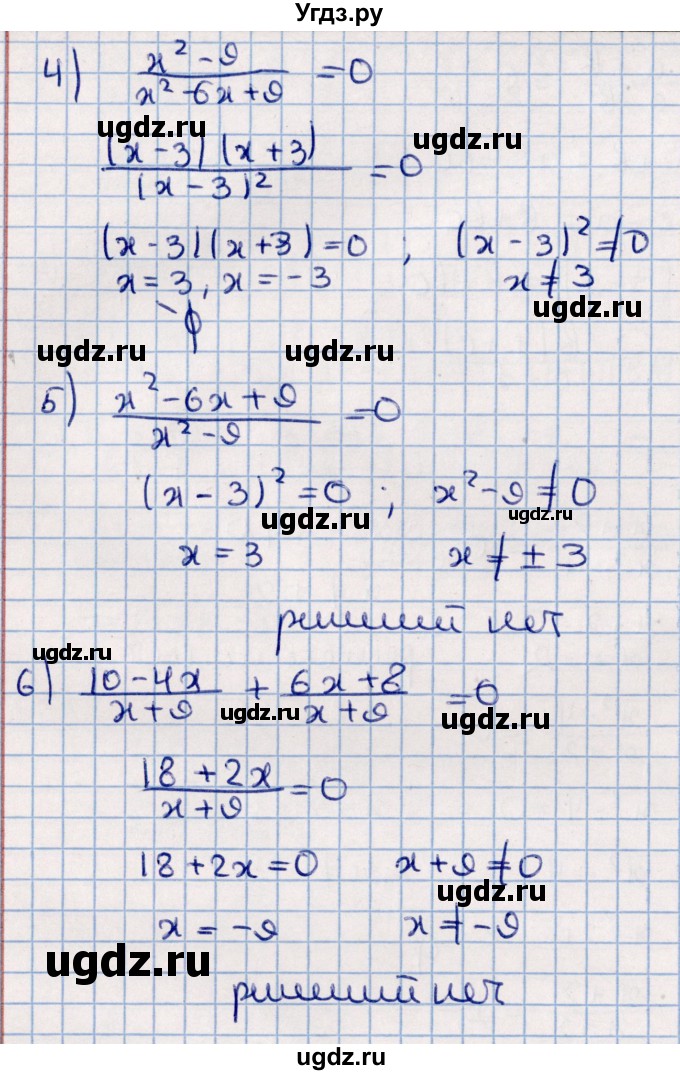 Угдз.ру
4) (x² - 9)/(x² - 6x + 9) = 0
ugdz.ru
ugdz.ru
((x - 3)(x + 3))/((x - 3)²) = 0
(x - 3)(x + 3) = 0 ; (x - 3)² ≠ 0
x = 3, x = - 3 x ≠ 3
ugdz.ru
ϕ
ugdz.ru
ugdz.ru
5) (x² - 6x + 9)/(x² - 9) = 0
(x - 3)² = 0 ; x² - 9 ≠ 0
ugdz.ru
ugdz.ru
x = 3 x ≠ ± 3
решений нет
ugdz.ru
6) (10 - 4x)/(x + 9) + (6x + 8)/(x + 9) = 0
ugdz.ru
ugdz.ru
(18 + 2x)/(x + 9) = 0
18 + 2x = 0 x + 9 ≠ 0
ugdz.ru
x = - 9 x ≠ - 9
ugdz.ru
решений нет
ugdz.ru